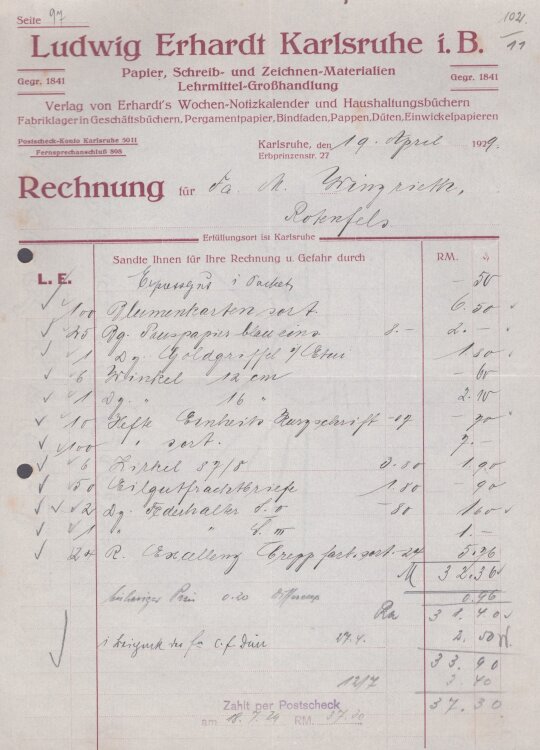 Seite 97
1021/11
Ludwig Erhardt Karlsruhe i. B.
Gegr. 1841
Papier, Schreib- und Zeichnen-Materialien
Lehrmittel-Großhandlung
Gegr. 1841
Verlag von Erhardt's Wochen-Notizkalender und Haushaltungsbüchern
Fabriklager in Geschäftsbüchern, Pergamentpapier, Bindfaden, Pappen, Düten, Einwickelpapieren
Postscheck-Konto Karlsruhe 5011
Fernsprechanschluß 898
Karlsruhe, den 19. April 1929.
Erbprinzenstr. 27
Rechnung für Fa. M.
Rotenfels
Erfüllungsort ist Karlsruhe
L. E. Sandte Ihnen für Ihre Rechnung u. Gefahr durch RM. ₰
Expressgut 1 Packet – 50
100 Blumenkarten sort. 6.50
25 Bg. Pauspapier 8.– 2.–
1 Dg. Goldgriffel 1.80
6 Winkel 12 cm – 60
1 Dg. " 16 " 2.10
10 Hefte Einheits Kurzschrift -09 – 90
100 " sort. 7.–
6 Zirkel 3.80 1.90
50 Eilgutfrachtbriefe 1.80 – 90
2 Dg. Federhalter -80 1.60
1 " " 1.–
24 R. Excellenz Crepp farb. sort. 24 5.76
M 32.36
Preis 0.20 0.96
31.40
C. f. Dürr 27.4. 2.50
33.90
12/7 3.40
37.30
Zahlt per Postscheck
am 18.7.29 RM. 37.30